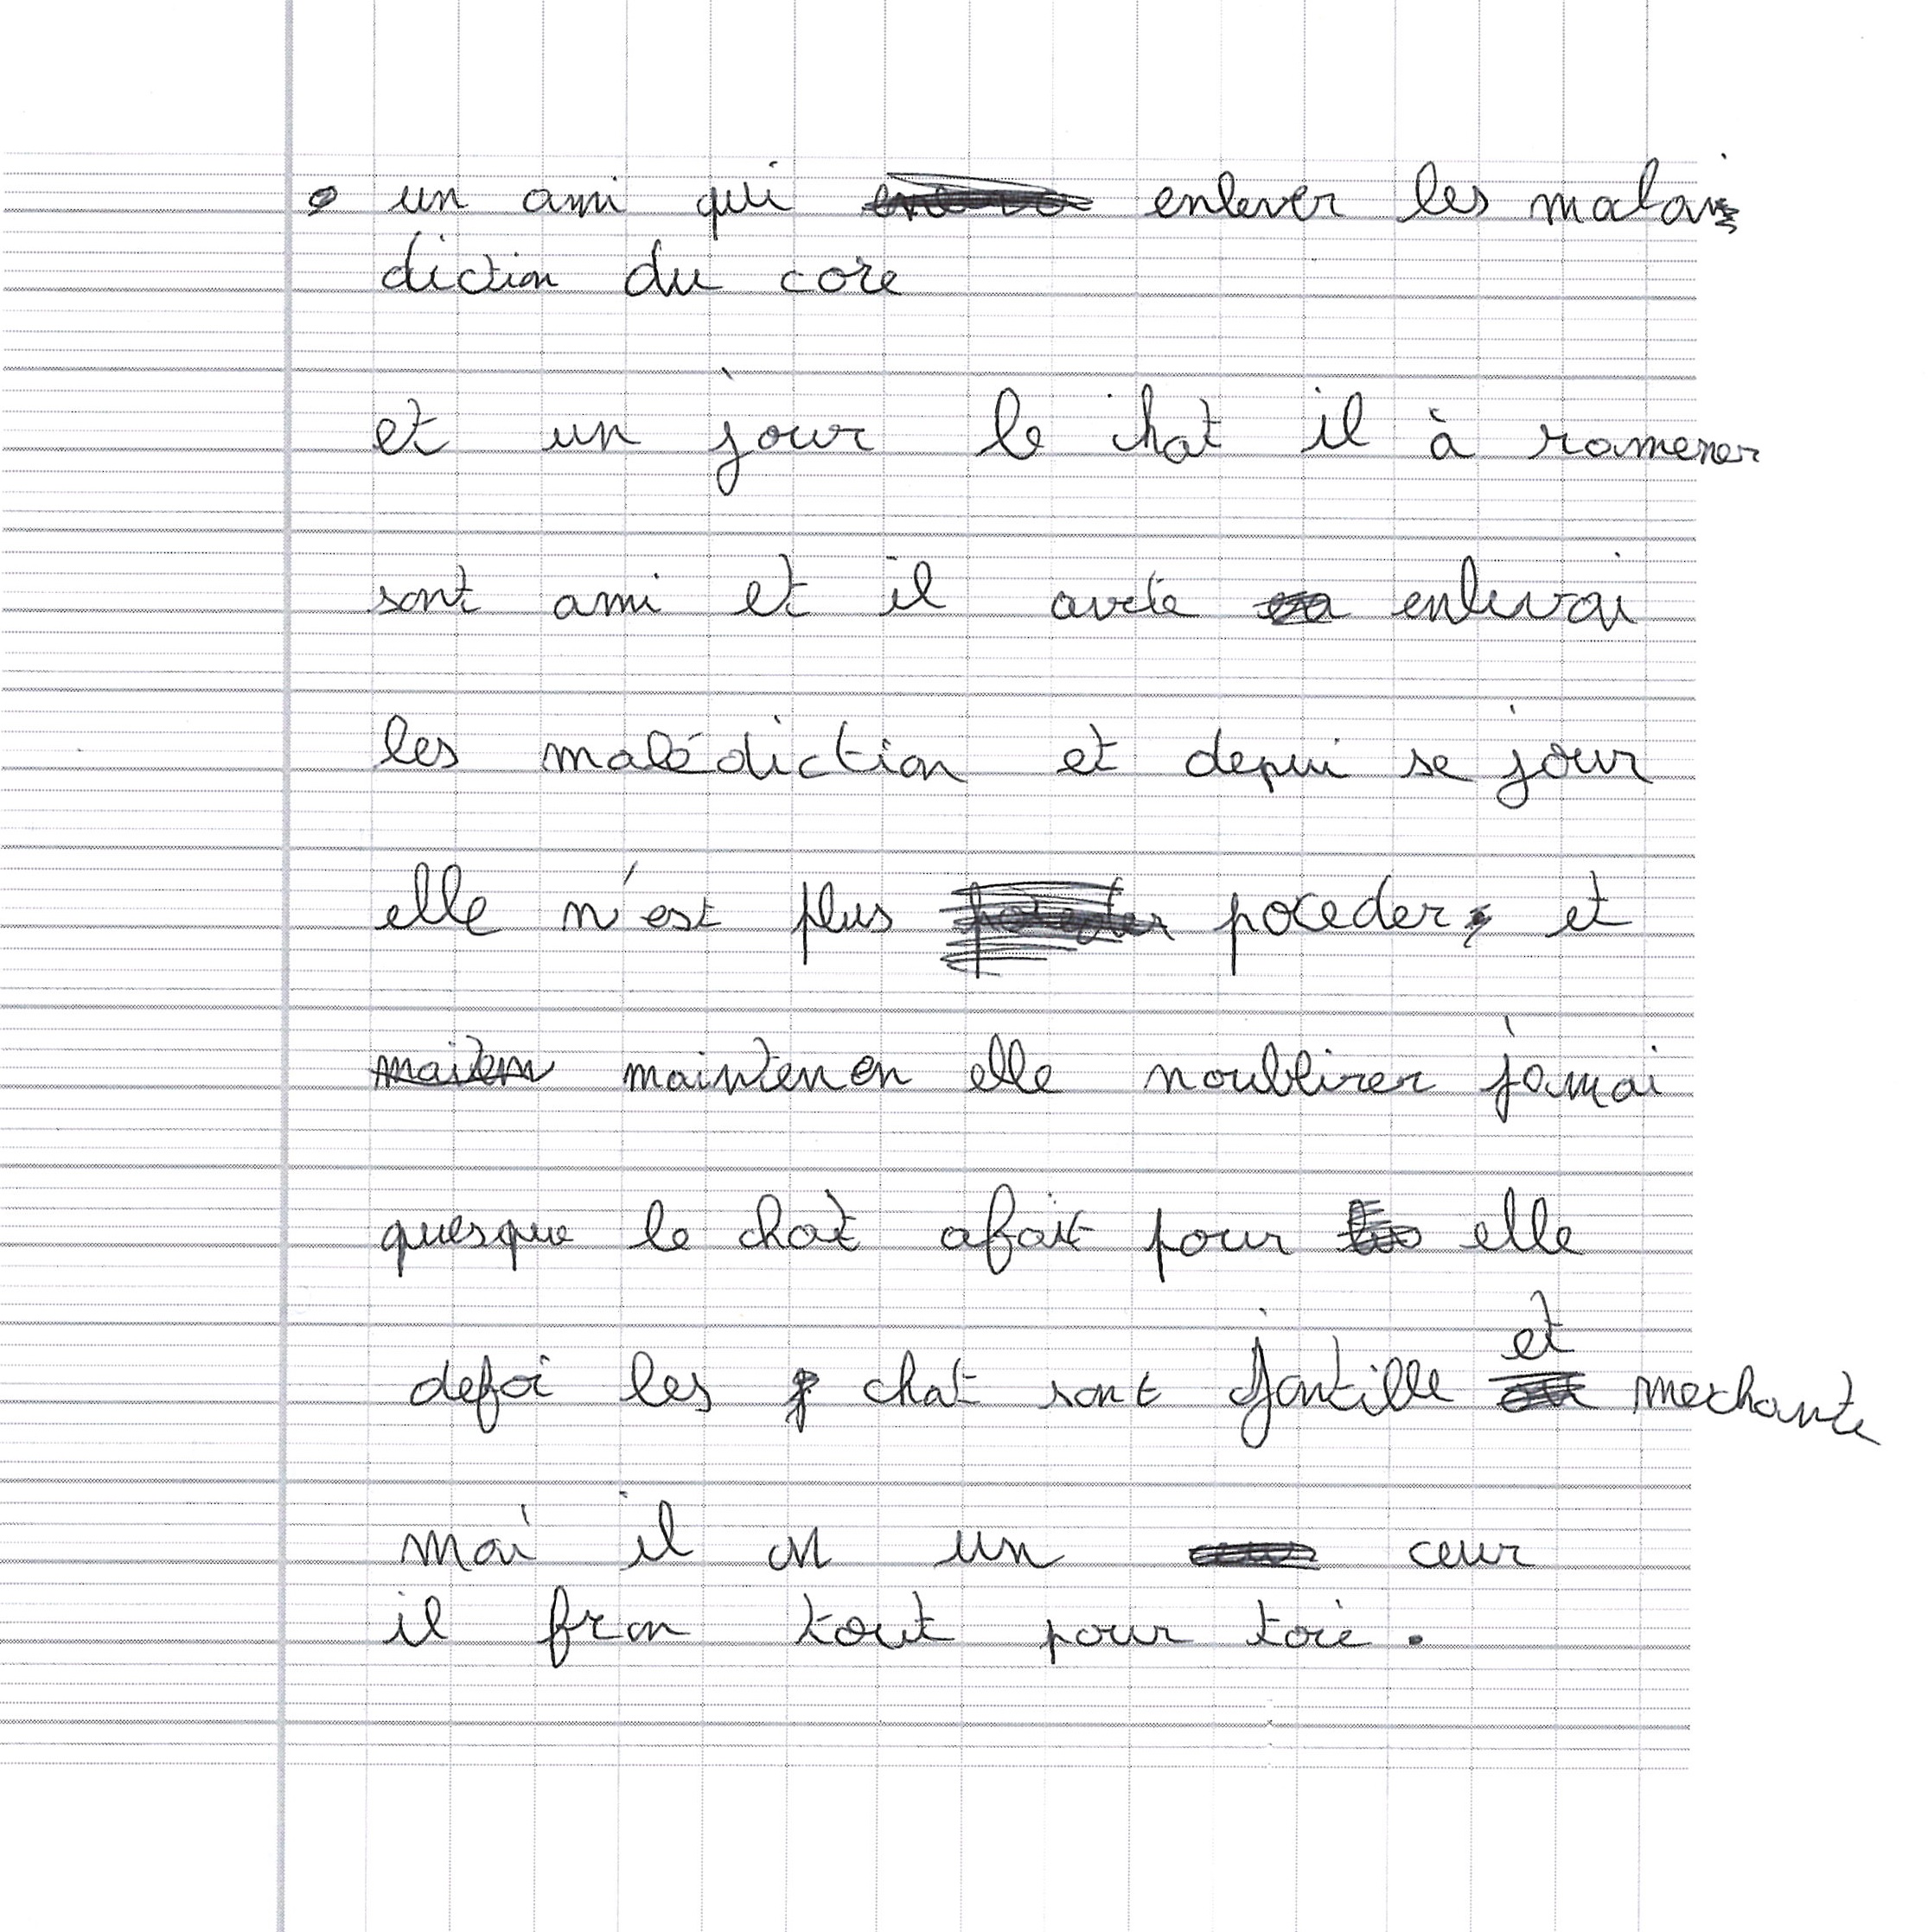 un ami qui enlever les malai
diction du core
et un jour le chat il à ramener
sont ami et il avete enlevai
les malédiction et depui se jour
elle n'est plus poceder et
maintenen elle noublirer jamai
quesque le chat afait pour elle
defoi les chat sont jantille et mechante
mai il on un ceur
il fron tout pour toie.